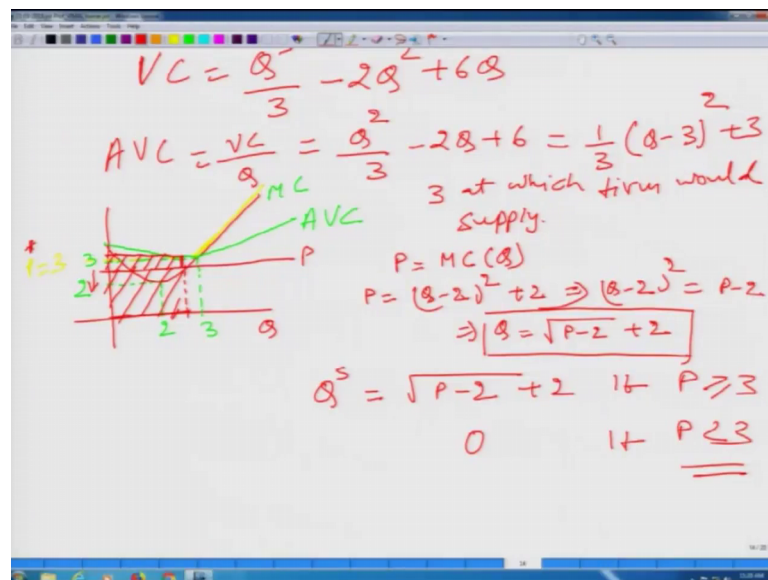 VC = Q³/3 - 2Q² + 6Q
AVC = VC/Q = Q²/3 - 2Q + 6 = 1/3 (Q-3)² + 3
3 at which firm would supply.
MC
AVC
P
P* = 3
3
2
2
3
Q
P = MC(Q)
P = (Q-2)² + 2 ⇒ (Q-2)² = P-2
⇒ Q = √P-2 + 2
Qˢ = √P-2 + 2 if P ≥ 3
0 if P < 3